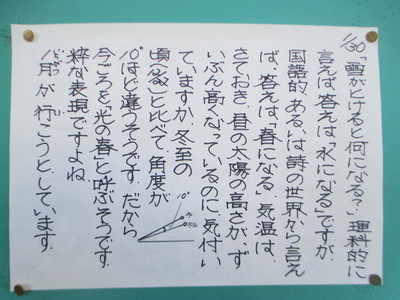 1/30「雪がとけると何になる？」理科的に
言えば、答えは「水になる」ですが、
国語的、あるいは詩の世界から言え
ば、答えは「春になる」。気温は、
さておき、昼の太陽の高さが、ず
いぶん高くなっているのに、気付い
ていますか。冬至の
頃(12/22)と比べて、角度が
10°ほど違うそうです。だから
今ごろを「光の春」と呼ぶそうです。
粋な表現ですよね。
1月が行こうとしています。
10°
今
冬至